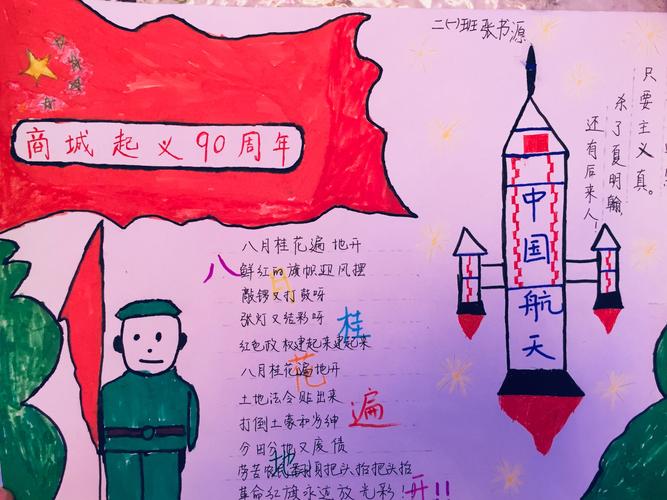 二(一)班张书源
商城起义90周年
只要主义真。
杀了夏明翰
还有后来人!
中国航天
八月桂花遍地开
鲜红的旗帜迎风摆
敲锣又打鼓呀
张灯又结彩呀
红色政权建起来建起来
八月桂花遍地开
土地法令贴出来
打倒土豪和劣绅
分田分地又废债
劳苦农民翻身把头抬把头抬
革命红旗永远放光彩!
八月桂花遍地开!!